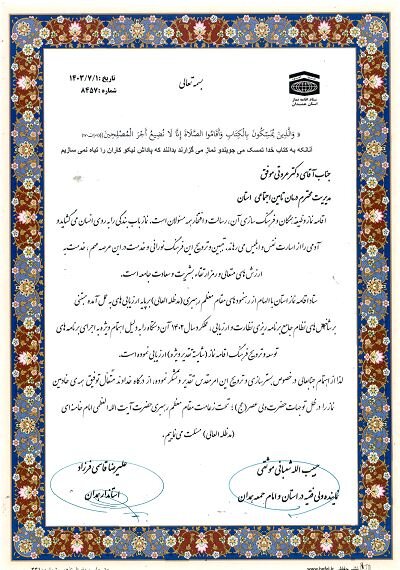 بسمه تعالی
تاریخ: ۱۴۰۳/۷/۱
شماره: ۸۴۵۷
ستاد اقامه نماز
استان همدان
« وَالَّذِينَ يُمَسِّكُونَ بِالْكِتَابِ وَأَقَامُوا الصَّلَاةَ إِنَّا لَا نُضِيعُ أَجْرَ الْمُصْلِحِينَ»
آنانکه به کتاب خدا تمسک می جویند و نماز می گزارند بدانند که پاداش نیکو کاران را تباه نمی سازیم
جناب آقای دکتر مروتی موفق
مدیریت محترم درمان تامین اجتماعی استان
اقامه نماز وظیفه همگان و فرهنگ سازی آن، رسالت و افتخار همه مسئولان است. نماز باب بندگی را به روی انسان می گشاید و
آدمی را از اسارت نفس و ابلیس می رهاند، تبیین و ترویج این فرهنگ نورانی و خدمت در این عرصه مهم، خدمت به
ارزش های متعالی و رمز ارتقاء بشریت و سعادت جامعه است.
ستاد اقامه نماز استان با الهام از رهنمودهای مقام معظم رهبری (مدظله العالی) بر پایه ارزیابی های به عمل آمده مبتنی
بر شاخص های نظام جامع برنامه ریزی نظارت و ارزیابی، عملکرد سال ۱۴۰۲ آن دستگاه را به دلیل اهتمام ویژه به اجرای برنامه های
توسعه و ترویج فرهنگ اقامه نماز (شایسته تقدیر ویژه) ارزیابی نموده است.
لذا از اهتمام جنابعالی در خصوص بسترسازی و ترویج این امر مقدس تقدیر و تشکر نموده، از درگاه خداوند متعال توفیق همه ی خادمین
نماز را در ظل توجهات حضرت ولی عصر (عج)؛ تحت زعامت مقام معظم رهبری حضرت آیت الله العظمی امام خامنه ای
(مدظله العالی) مسئلت می نماییم.
حبیب الله شعبانی موثقی
نماینده ولی فقیه در استان و امام جمعه همدان
علیرضا قاسمی فرزاد
استاندار همدان